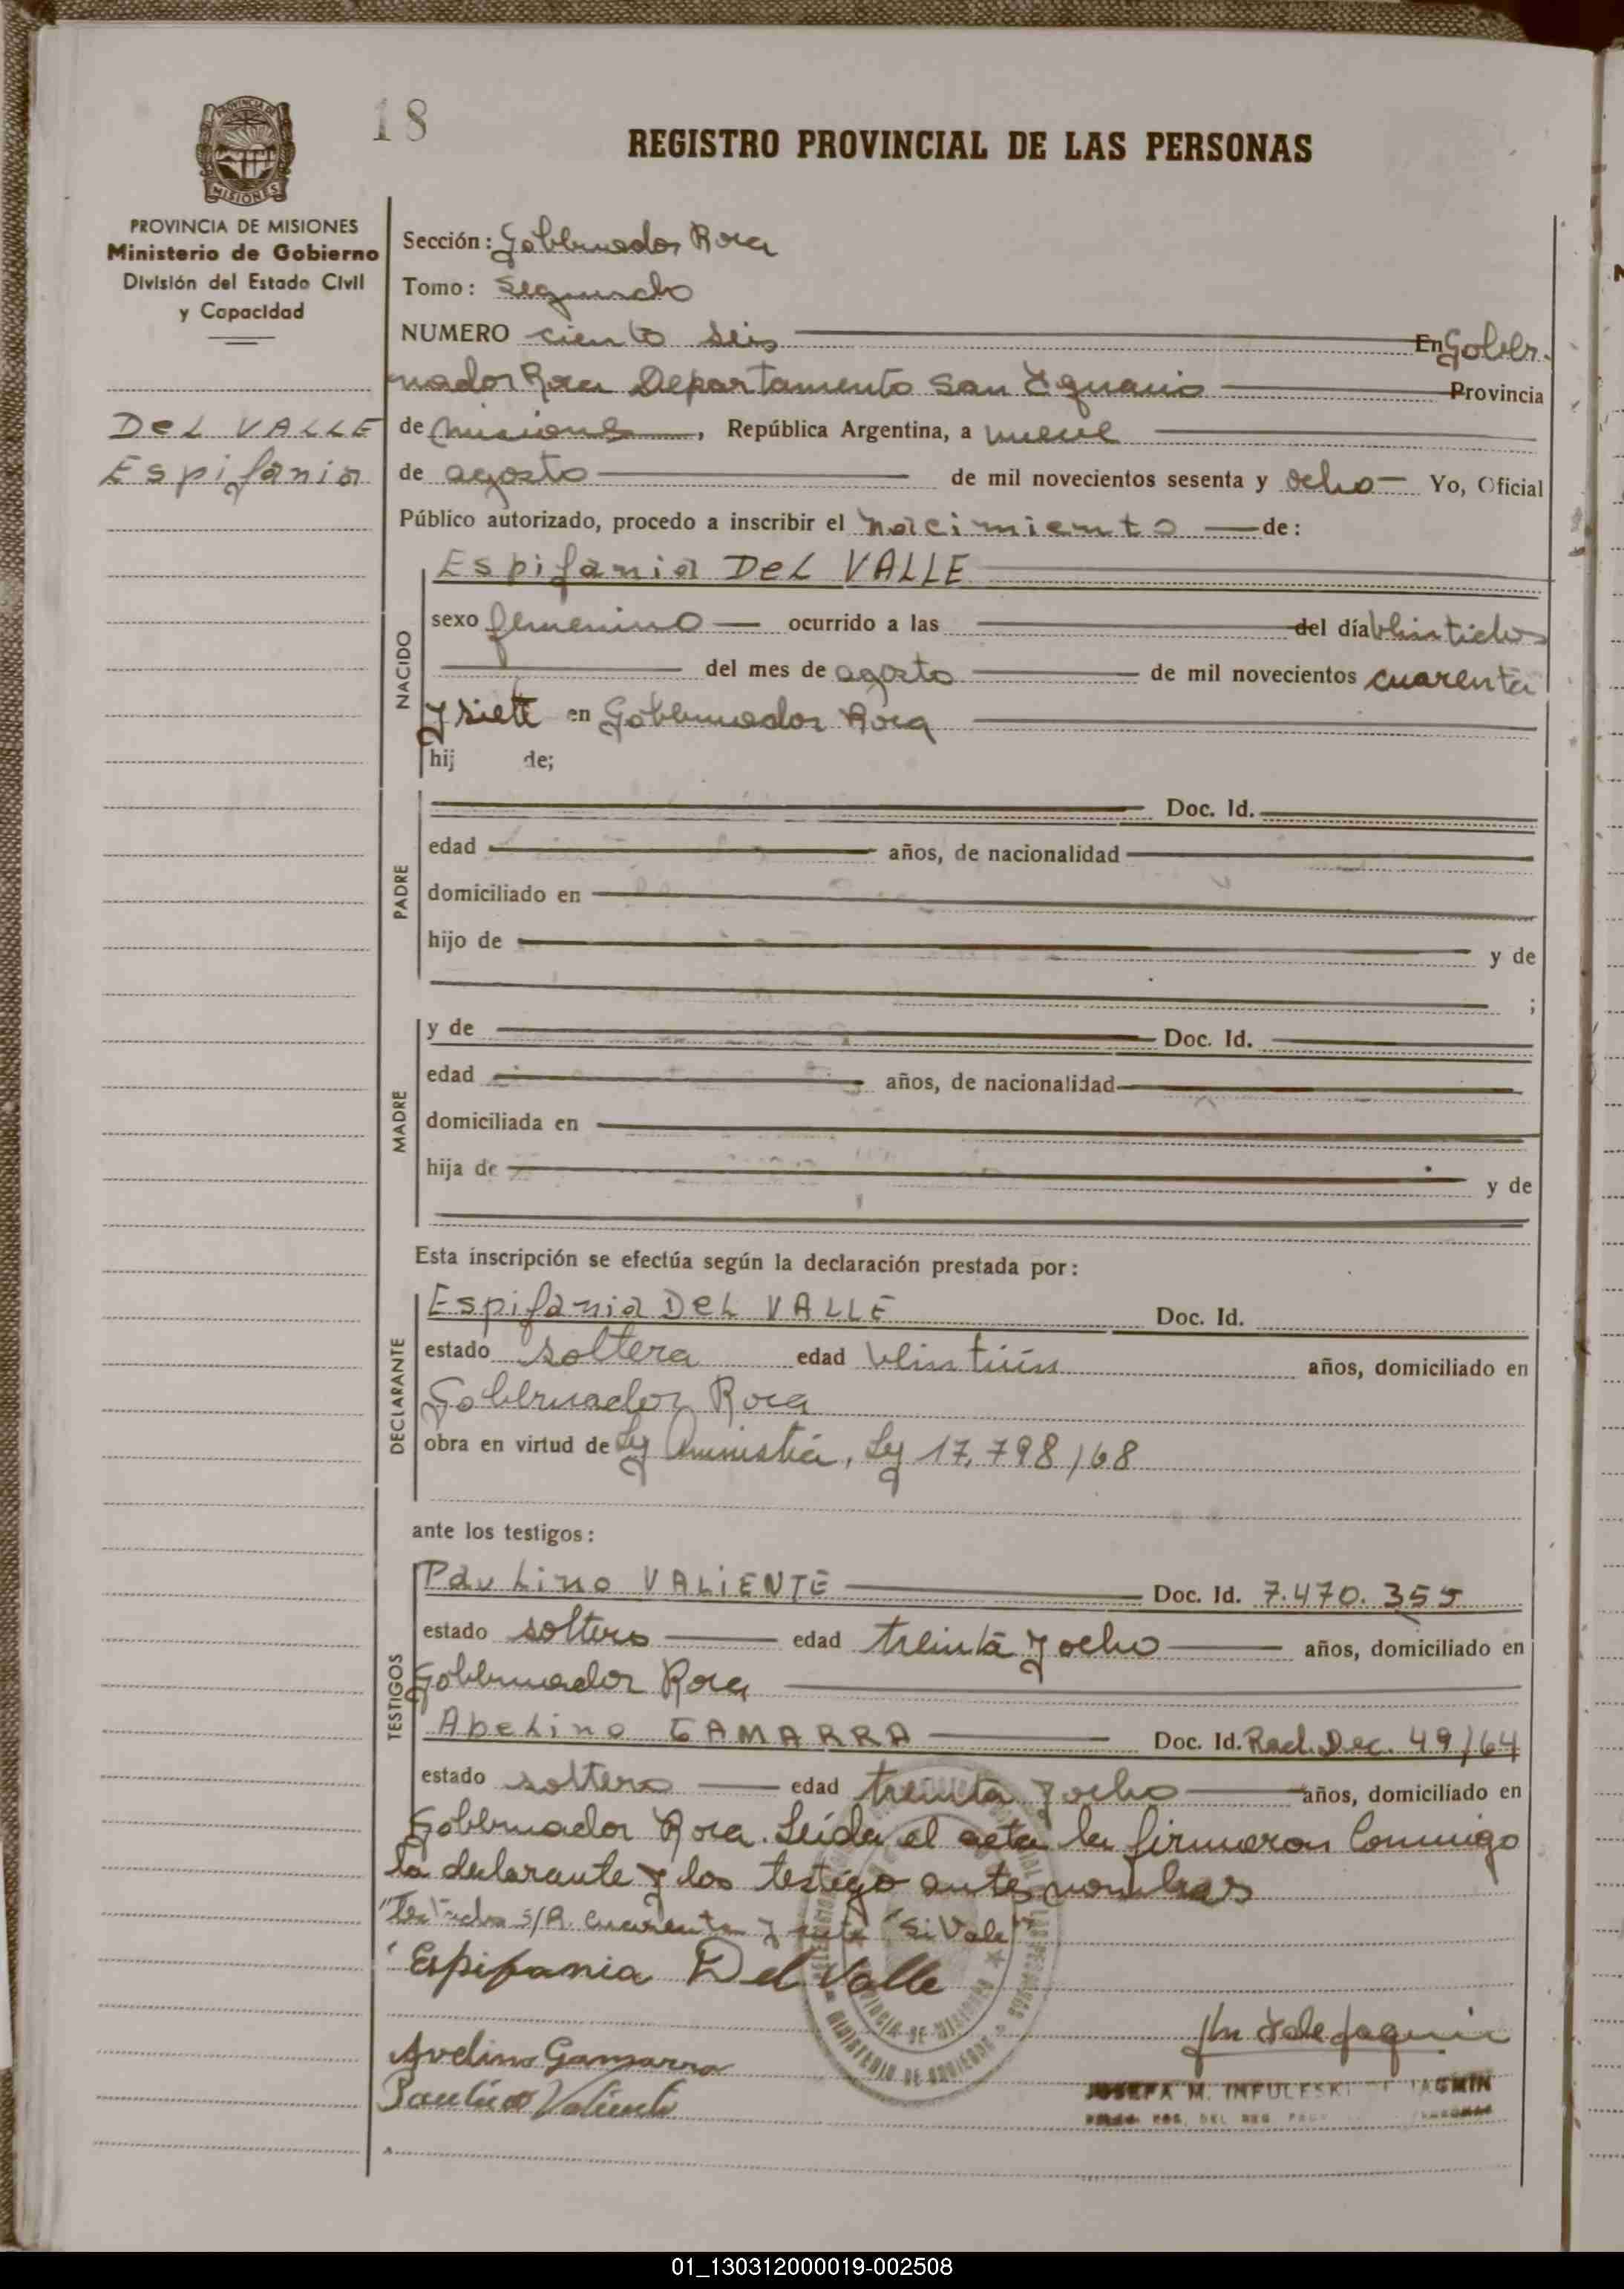 18
REGISTRO PROVINCIAL DE LAS PERSONAS
PROVINCIA DE
MISIONES
PROVINCIA DE MISIONES
Ministerio de Gobierno
División del Estado Civil
y Capacidad
DeL VALLE
Espifania
Sección: Gobernador Roca
Tomo: Segundo
NUMERO ciento seis En Gober-
nador Roca Departamento San Ignacio Provincia
de misiones, República Argentina, a nueve
de agosto de mil novecientos sesenta y ocho Yo, Oficial
Público autorizado, procedo a inscribir el nacimiento de:
NACIDO
Espifania DeL VALLE
sexo femenino ocurrido a las del día veintidos
del mes de agosto de mil novecientos cuarenta
y siete en Gobernador Roca
hij de;
PADRE
Doc. Id.
edad años, de nacionalidad
domiciliado en
hijo de y de
;
MADRE
y de Doc. Id.
edad años, de nacionalidad
domiciliada en
hija de y de
Esta inscripción se efectúa según la declaración prestada por:
DECLARANTE
Espifania DeL VALLE Doc. Id.
estado soltera edad veintiún años, domiciliado en
Gobernador Roca
obra en virtud de Ley Amnistía, Ley 17.798/68
ante los testigos:
TESTIGOS
PauLino VALiENTE Doc. Id. 7.470.355
estado soltero edad treinta y ocho años, domiciliado en
Gobernador Roca
AbeLino GAMARRA Doc. Id. Rad. Dec. 49/64
estado soltero edad treinta y ocho años, domiciliado en
Gobernador Roca. Leída el acta la firmaron Conmigo
la declarante y los testigo antes nombras
S/R. cuarenta y siete "Si Vale"
Espifania Del Valle
Avelino Gamarra
Paulino Valiente
JOSEFA M. INFULESKI DE JAGMIN
01_130312000019-002508